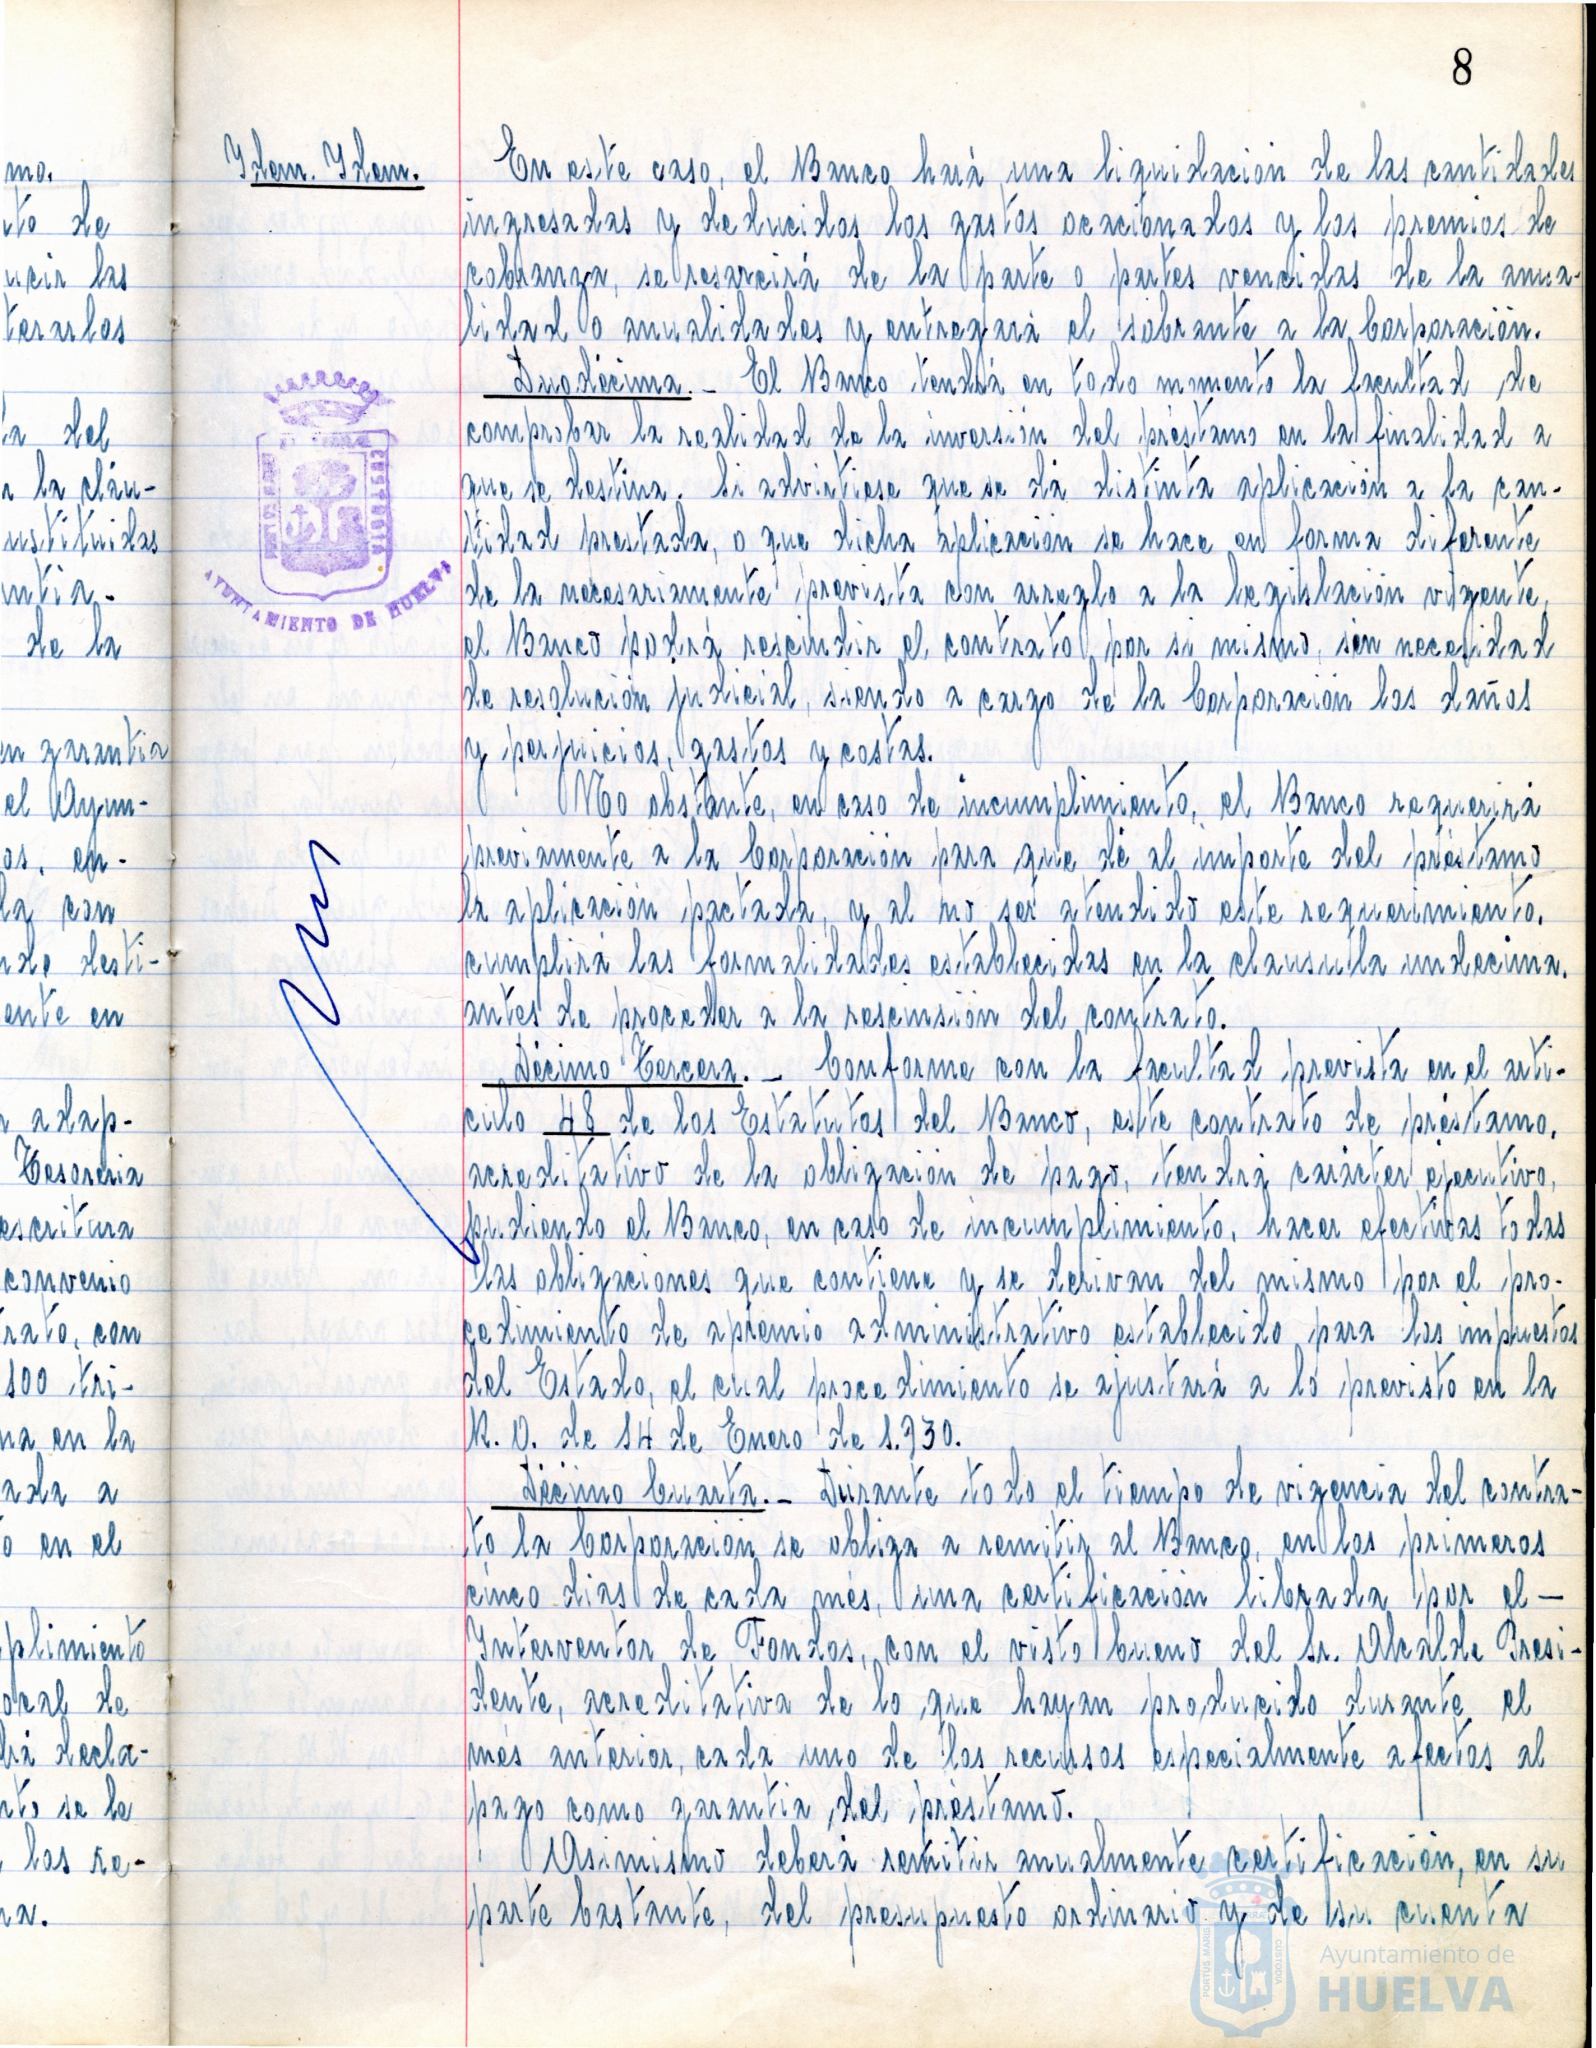 8
Idem. Idem.
En este caso, el Banco hará una liquidación de las cantidades
ingresadas y deducidos los gastos ocacionados y los premios de
cobranza, se resarcirá de la parte o partes vencidas de la anua-
lidad o anualidades y entregará el sobrante a la Corporación.
Duodécima.- El Banco tendrá en todo momento la facultad de
comprobar la realidad de la inversión del préstamo en la finalidad a
que se destina. Si advirtiese que se dá distinta aplicación a la can-
tidad prestada, o que dicha aplicación se hace en forma diferente
de la necesariamente prevista con arreglo a la legislación vigente,
el Banco podrá rescindir el contrato por si mismo, sin necesidad
de resolución judicial, siendo a cargo de la Corporación los daños
y perjuicios, gastos y costas.
No obstante, en caso de incumplimiento, el Banco requerirá
previamente a la Corporación para que dé al importe del préstamo
la aplicación pactada, y al no ser atendido este requerimiento,
cumplirá las formalidades establecidas en la clausula undecima,
antes de proceder a la rescinsión del contrato.
Décimo Tercera.- Conforme con la facultad prevista en el arti-
culo 48 de los Estatutos del Banco, este contrato de préstamo,
acreditativo de la obligación de pago, tendrá carácter ejecutivo,
pudiendo el Banco, en caso de incumplimiento, hacer efectivas todas
las obligaciones que contiene y se derivan del mismo por el pro-
cedimiento de apremio administrativo establecido para los impuestos
del Estado, el cual procedimiento se ajustará a lo previsto en la
R. O. de 14 de Enero de 1.930.
Décimo Cuarta.- Durante todo el tiempo de vigencia del contra-
to la Corporación se obliga a remitir al Banco, en los primeros
cinco dias de cada més, una certificación librada por el -
Interventor de Fondos, con el visto bueno del Sr. Alcalde Presi-
dente, acreditativa de lo que hayan producido durante el
més anterior, cada uno de los recursos especialmente afectos al
pago como garantia del préstamo.
Asimismo deberá remitir anualmente certificación, en su
parte bastante, del presupuesto ordinario y de su cuenta
AYUNTAMIENTO DE HUELVA
mo.
de
ucir las
terarlos
del
la cláu-
ustituidas
antia.-
de la
en garantia
el Ayun-
os, en-
la con
desti-
ente en
adap-
Tesoreria
escritura
convenio
rato, con
100 tri-
na en la
ada a
o en el
plimiento
ocal de
drá decla-
nto se le
los re-
na.
PORTUS MARIS
CUSTODIA
Ayuntamiento de
HUELVA